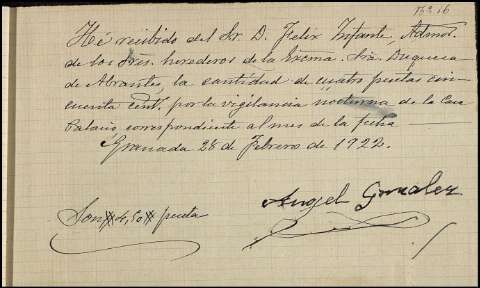 Nº 16
Hé recibido del Sr. D. Felix Infante, Admor.
de los Sres. herederos de la Excma. Sra. Duquesa
de Abrantes, la cantidad de cuatro pesetas cin
cuenta cents. por la vigilancia nocturna de la Casa
Palacio, correspondiente al mes de la fecha
Granada 28 de Febrero de 1922.
Angel Gonzalez
Son # 4,50 # pesetas